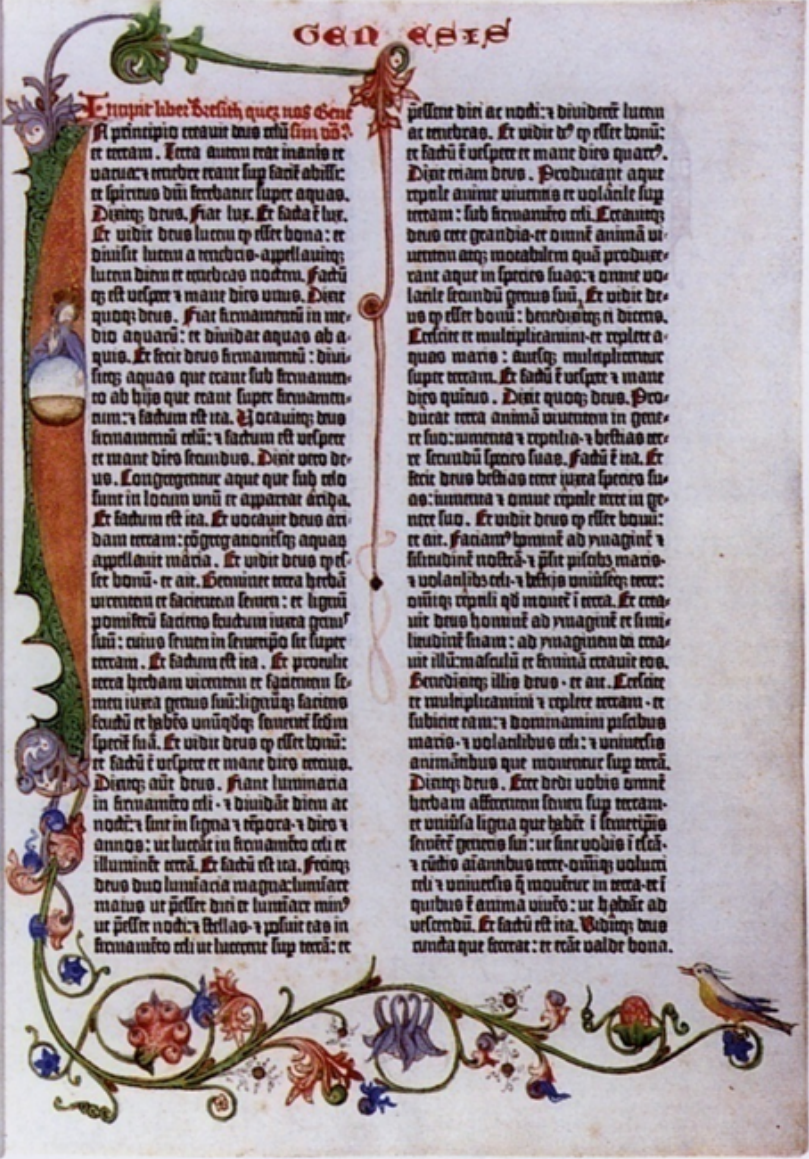 GENESIS
Incipit liber Bresith quez nos Gene
IN principio creavit deus celū sim dō?
et terram. Terra autem erat inanis et
vacua: ⁊ tenebre erant sup faciē abissi:
et spiritus dūi ferebatur super aquas.
Dixitqꝫ deus. Fiat lux. Et facta ē lux.
Et vidit deus lucem ꝙ esset bona: et
divisit lucem a tenebris·appellavitqꝫ
lucem diem et tenebras noctem. Factū
qꝫ est vespere ⁊ mane dies unus. Dixit
quoqꝫ deus. Fiat firmamentū in me-
dio aquarū: et dividat aquas ab a-
quis. Et fecit deus firmamentū: divi-
sitqꝫ aquas que erant sub firmamen-
to ab hijs que erant super firmamen-
tum: ⁊ factum est ita. Vocavitqꝫ deus
firmamentū celū: ⁊ factum est vespere
et mane dies secundus. Dixit vero de-
us. Congregentur aque que sub celo
sunt in locum unū et appareat arida.
Et factum est ita. Et vocavit deus ari-
dam terram: cōgregationesqꝫ aquaꝝ
appellavit maria. Et vidit deus ꝙ es-
set bonū· et ait. Germinet terra herbā
virentem et facientem semen: et lignū
pomiferū faciens fructum iuxta genus
suū: cuius semen in semetipō sit super
terram. Et factum est ita. Et protulit
terra herbam virentem et facientem se-
men iuxta genus suū: lignūqꝫ faciens
fructū et habēs unūqdqꝫ sementē scdm
speciē suā. Et vidit deus ꝙ esset bonū:
et factū ē vespere et mane dies tercius.
Dixitqꝫ aūt deus. Fiant luminaria
in firmamēto celi · ⁊ dividāt diem ac
noctē: ⁊ sint in signa ⁊ tēpora· ⁊ dies ⁊
annos: ut luceāt in firmamēto celi et
illuminēt terrā. Et factū est ita. Fecitqꝫ
deus duo luminaria magna: lumīare
maius ut pēsset diei et lumīare minꝰ
ut pēsset nocti: ⁊ stellas· ⁊ posuit eas in
firmamēto celi ut lucerent sup terrā: et
pēssent diei ac nocti: ⁊ dividerēt lucem
ac tenebras. Et vidit dꝰ ꝙ esset bonū:
et factū ē vespere et mane dies quartꝰ.
Dixit etiam deus. Producant aque
reptile anime viventis et volatile sup
terram: sub firmamēto celi. Creavitqꝫ
deus cete grandia· et omnē animā vi-
ventem atqꝫ motabilem quā produxe-
rant aque in species suas: ⁊ omne vo-
latile secundū genus suū. Et vidit de-
us ꝙ esset bonū: benedixitqꝫ ei dicens.
Crescite et multiplicamini· et replete a-
quas maris: avesqꝫ multiplicentur
super terram. Et factū ē vespere ⁊ mane
dies quītus. Dixit quoqꝫ deus. Pro-
ducat terra animā viventem in gene-
re suo: iumenta ⁊ reptilia· ⁊ bestias ter-
re secundū species suas. Factū ē ita. Et
fecit deus bestias terre iuxta species su-
as: iumenta ⁊ omne reptile terre in ge-
nere suo. Et vidit deus ꝙ esset bonū:
et ait. Faciamꝰ hominē ad ymaginē ⁊
silitudinē nostrā· ⁊ p̄sit piscibꝫ maris·
⁊ volatilibꝫ celi· ⁊ bestijs univēseqꝫ terre:
omīqꝫ reptili qd movet ī terra. Et crea-
vit deus hominē ad ymaginē et simi-
litudinē suam: ad ymaginem dei crea-
vit illū: masculū et feminā creavit eos.
Benedixitqꝫ illis deus · et ait. Crescite
et multiplicamini ⁊ replete terram · et
subicite eam: ⁊ dominamini piscibus
maris· ⁊ volatilibus celi: ⁊ universis
animātibus que moventur sup terrā.
Dixitqꝫ deus. Ecce dedi vobis omnē
herbam afferentem semen sup terram·
et univēsa ligna que habēt ī semetipīs
semētē generis sui: ut sint vobis ī escā·
⁊ cūctis aīantibus terre· omīqꝫ volucri
celi ⁊ universis q̄ movētur in terra· et ī
quibus ē anima vivēs: ut habeāt ad
vescendū. Et factū est ita. Viditqꝫ deus
cuncta que fecerat: et erāt valde bona.